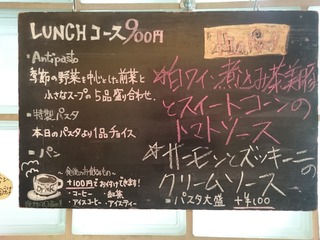 LUNCH コース 900円
・Antipasto
季節の野菜を中心とした前菜と
小さなスープの5品盛り合わせ
・特製パスタ
本日のパスタより1品チョイス
・パン
+100円でお付けできます!
・コーヒー ・紅茶
・アイスコーヒー ・アイスティー
☆白ワイン煮とお茶美豚
とスイートコーンの
トマトソース
☆サーモンとズッキーニの
クリームソース
パスタ大盛 +¥100